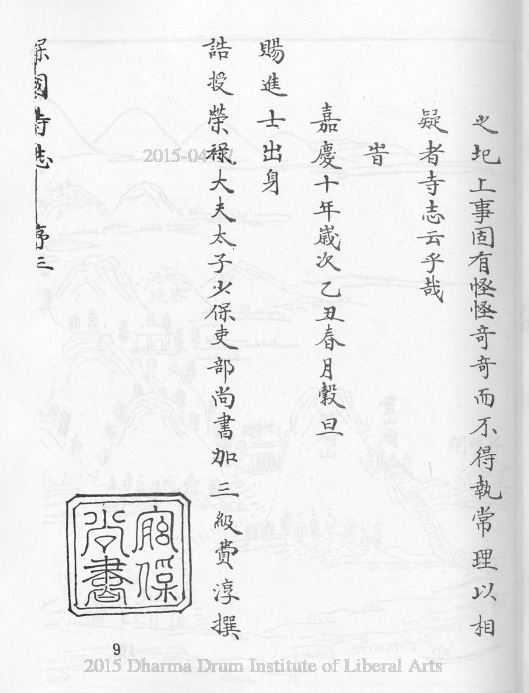 之圯上事固有怪怪奇奇而不得執常理以相
疑者寺志云乎哉
旹
嘉慶十年歲次乙丑春月穀旦
賜進士出身
誥授榮祿大夫太子少保吏部尚書加三級費淳撰
宮保
尚書
保國寺志
序三
9
2015-04-17
2015 Dharma Drum Institute of Liberal Arts